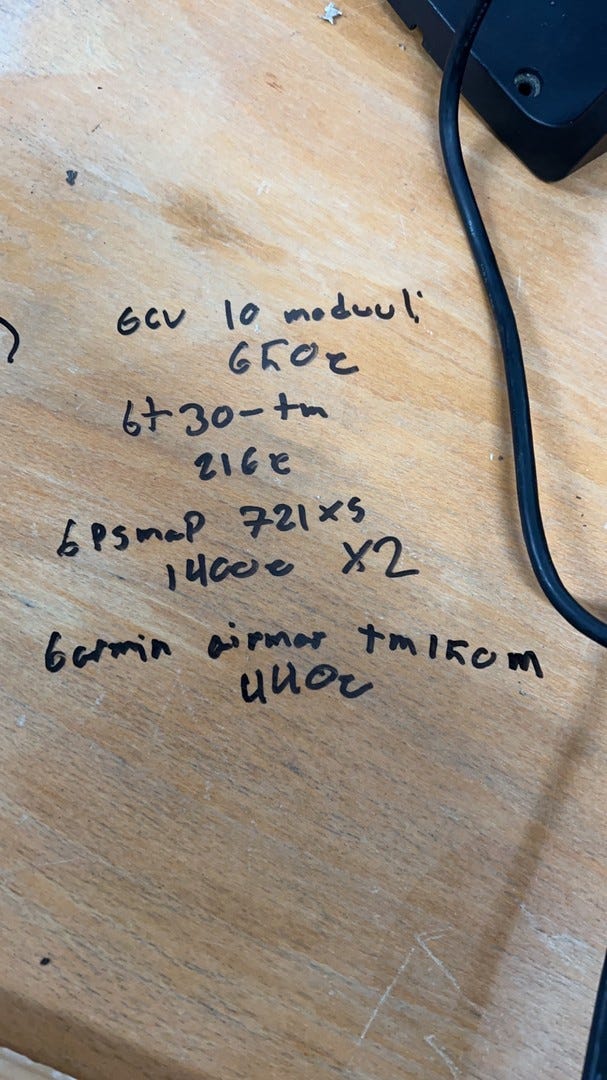 GCV 10 moduuli
650€
Gt30-tm
216€
GPSmaP 721xs
1400€ X2
Garmin airmar tm150m
440€